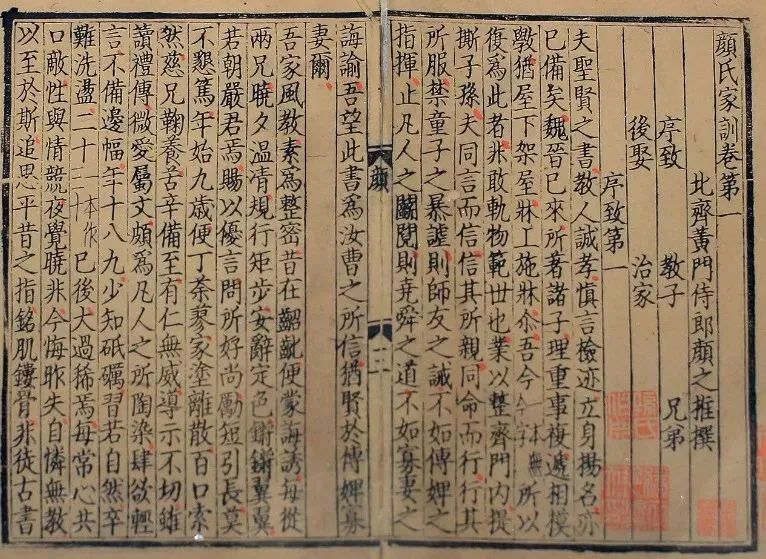 顔氏家訓卷第一
北齊黄門侍郎顔之推撰
序致 教子 兄弟
後娶 治家
序致第一
夫聖賢之書教人誠孝慎言檢迹立身揚名亦
已備矣魏晉已來所著諸子理重事複遞相模
斆猶屋下架屋牀上施牀尒吾今一本無今字所以
復爲此者非敢軌物範世也業以整齊門内提
撕子孫夫同言而信信其所親同命而行行其
所服禁童子之暴謔則師友之誡不如傅婢之
指揮止凡人之鬬䦧則堯舜之道不如寡妻之
誨諭吾望此書爲汝曹之所信猶賢於傅婢寡
妻爾
顔
一
吾家風教素爲整密昔在齠齔便蒙誨誘每從
兩兄曉夕温凊規行矩步安辭定色鏘鏘翼翼
若朝嚴君焉賜以優言問所好尚勵短引長莫
不懇篤年始九歳便丁荼蓼家塗離散百口索
然慈兄鞠養苦辛備至有仁無威導示不切雖
讀禮傳微愛屬文頗爲凡人之所陶染肆欲輕
言不備邊幅年十八九少知砥礪習若自然卒
難洗盪二十一本作三十已後大過稀焉每常心共
口敵性與情競夜覺曉非今悔昨失自憐無教
以至於斯追思平昔之指銘肌鏤骨非徒古書